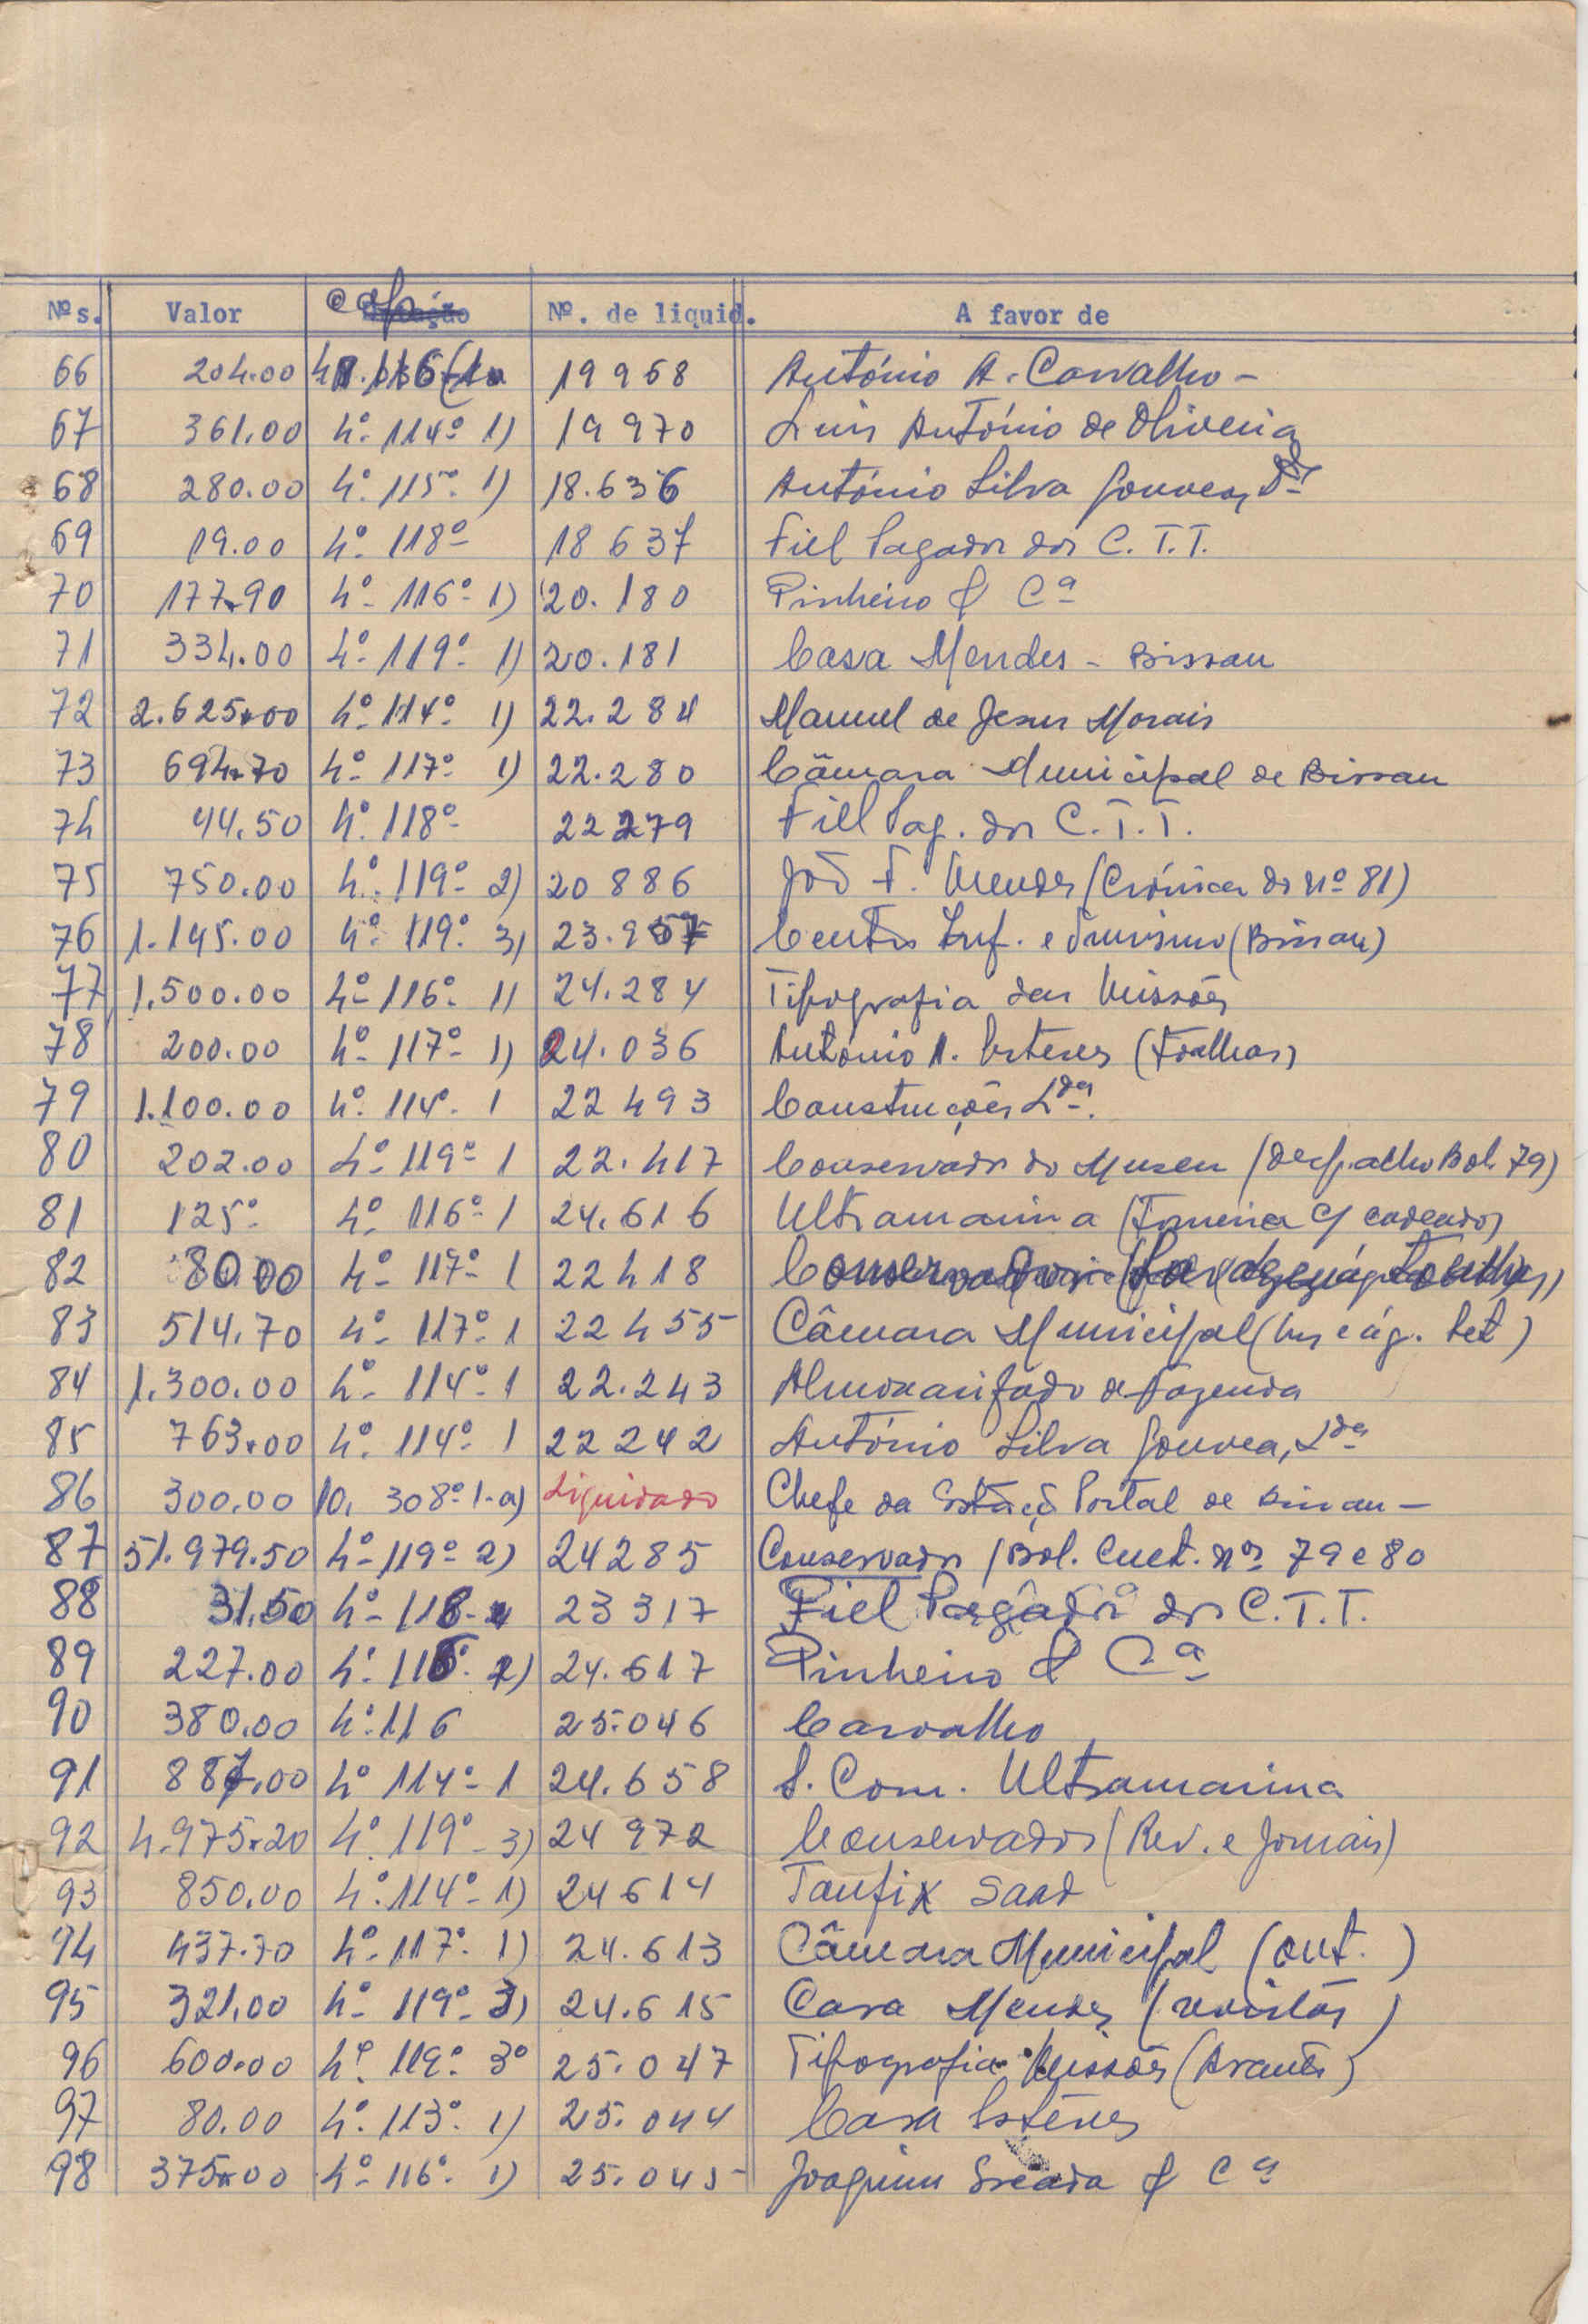 Nºs. Valor Cap. Nº. de liquid. A favor de
66 204.00 4º 116 (1º 19968 António A. Carvalho -
67 361.00 4º 114º 1) 19970 Luis António de Oliveira
68 280.00 4º 115º 1) 18.636 António Silva Gouvea, Lda
69 19.00 4º 118º 18637 Fiel Pagador dos C.T.T.
70 177.90 4º 116º 1) 20.180 Pinheiro & Cª
71 334.00 4º 119º 1) 20.181 Casa Mendes - Bissau
72 2.625.00 4º 114º 1) 22.284 Manuel de Jesus Morais
73 694.70 4º 117º 1) 22.280 Câmara Municipal de Bissau
74 44.50 4º 118º 22279 Fiel Pag. dos C.T.T.
75 750.00 4º 119º 2) 20886 João F. Mendes (Crónica do nº 81)
76 1.145.00 4º 119º 3) 23.957 Centro Inf. e Turismo (Bissau)
77 1.500.00 4º 116º 1) 24.284 Tipografia das Missões
78 200.00 4º 117º 1) 24.036 António A. Esteves (Toalhas)
79 1.100.00 4º 114º 1 22493 Construções Lda.
80 202.00 4º 119º 1 22.417 Conservador do Museu (despacho Bol. 79)
81 125º 4º 116º 1 24.616 Ultramarina (Torneira c/ cadeado)
82 80.00 4º 117º 1 22418 Conservador
83 514.70 4º 117º 1 22455 Câmara Municipal (luz e ág. Set)
84 1.300.00 4º 114º 1 22.243 Almoxarifado de Fazenda
85 763.00 4º 114º 1 22242 António Silva Gouvea, Lda
86 300.00 10. 308º 1-a) Liquidado Chefe da Estação Postal de Bissau -
87 51.979.50 4º 119º 2) 24285 Conservador (Bol. Cult. nos 79 e 80
88 31.50 4º 118 23317 Fiel Pagador dos C.T.T.
89 227.00 4º 116º 2) 24.617 Pinheiro & Cª
90 380.00 4º 116 25.046 Carvalho
91 887.00 4º 114º 1 24.658 S. Com. Ultramarina
92 4.975.20 4º 119º 3) 24972 Conservador (Rev. e Jornais)
93 850.00 4º 114º 1) 24614 Taufix Saad
94 437.70 4º 117º 1) 24.613 Câmara Municipal (out.)
95 321.00 4º 119º 3) 24.615 Casa Mendes (revistas)
96 600.00 4º 119º 3º 25.047 Tipografia Missões
97 80.00 4º 113º 1) 25.044 Casa Esteves
98 375.00 4º 116º 1) 25.045 Joaquim & Cª